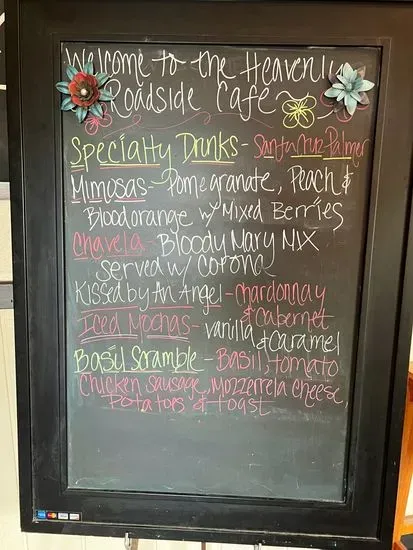 Welcome to the Heavenly
Roadside Cafe
Specialty Drinks - Santa Cruz Palmer
Mimosas - Pomegranate, Peach &
Bloodorange w/ Mixed Berries
Chavela - Bloody Mary Mix
served w/ Corona
Kissed by An Angel - Chardonnay
& Cabernet
Iced Mochas - vanilla & Caramel
Basil Scramble - Basil, tomato
Chicken sausage, Mozzerrela cheese,
Potatoes & toast